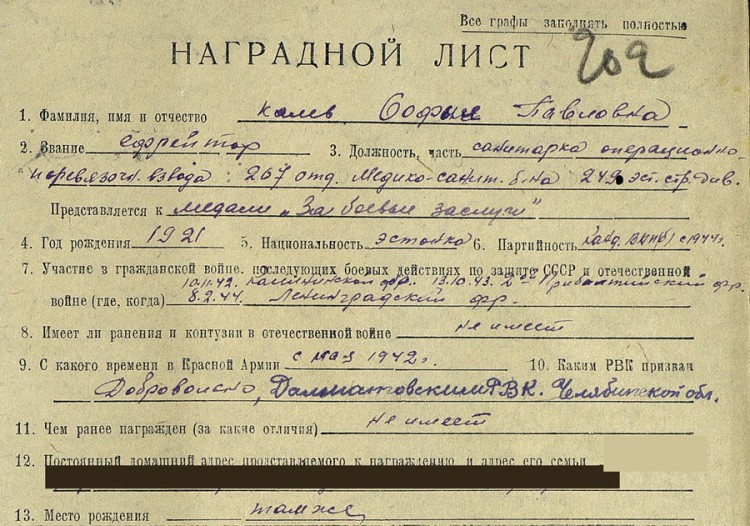 Все графы заполнять полностью
НАГРАДНОЙ ЛИСТ 202
1. Фамилия, имя и отчество Каль Софья Павловна
2. Звание Ефрейтор 3. Должность, часть санитарка операционно-
перевязочн. взвода 267 отд. Медико-санит. б-на 249 эст. стр. див.
Представляется к медали „За боевые заслуги"
4. Год рождения 1921 5. Национальность эстонка 6. Партийность канд. ВКП(б) с 1944 г.
7. Участие в гражданской войне, последующих боевых действиях по защите СССР и отечественной
10.11.42. Калининский фр. 13.10.43. 2й Прибалтийский фр.
войне (где, когда) 8.2.44. Ленинградский фр.
8. Имеет ли ранения и контузии в отечественной войне не имеет
9. С какого времени в Красной Армии с мая 1942 г. 10. Каким РВК призван
Добровольно, Далматовским РВК. Челябинской обл.
11. Чем ранее награжден (за какие отличия) не имеет
12. Постоянный домашний адрес представляемого к награждению и адрес его семьи
13. Место рождения там же